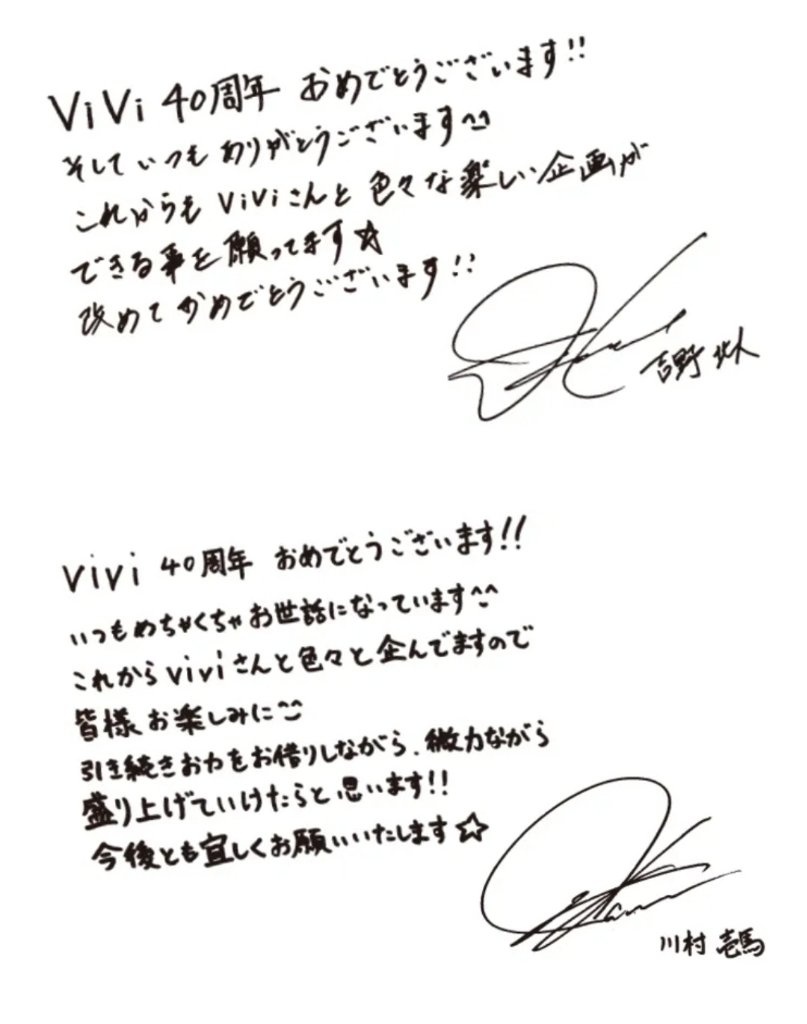 ViVi 40周年 おめでとうございます!!
そして いつも ありがとうございます^^
これからも ViViさんと 色々な楽しい企画が
できる事を願ってます☆
改めて おめでとうございます!!
吉野 北人
ViVi 40周年 おめでとうございます!!
いつもめちゃくちゃお世話になっています^^
これからViViさんと色々と企んでますので
皆様お楽しみに^^
引き続きお力をお借りしながら、微力ながら
盛り上げていけたらと思います!!
今後とも宜しくお願いいたします☆
川村 壱馬